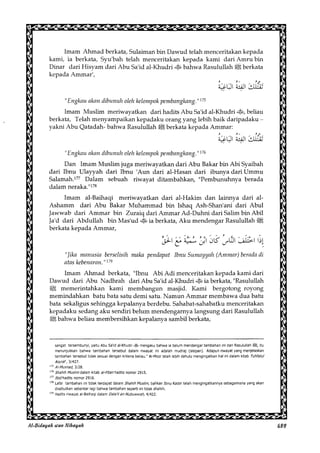 Imam Ahmad berkata, Sulaiman bin Dawud telah menceritakan kepada
kami, ia berkata, Syu'bah telah menceritakan kepada kami dari Amru bin
Dinar dari Hisyam dari Abu Sa'id al-Khudri ؓ bahwa Rasulullah ﷺ berkata
kepada Ammar',
تَقْتُلُكَ الْفِئَةُ الْبَاغِيَةُ
"Engkau akan dibunuh oleh kelompok pembangkang."175
Imam Muslim meriwayatkan dari hadits Abu Sa'id al-Khudri ؓ, beliau
berkata, Telah menyampaikan kepadaku orang yang lebih baik daripadaku -
yakni Abu Qatadah- bahwa Rasulullah ﷺ berkata kepada Ammar:
تَقْتُلُكَ الْفِئَةُ الْبَاغِيَةُ
"Engkau akan dibunuh oleh kelompok pembangkang."176
Dan Imam Muslim juga meriwayatkan dari Abu Bakar bin Abi Syaibah
dari Ibnu Ulayyah dari Ibnu 'Aun dari al-Hasan dari ibunya dari Ummu
Salamah.177 Dalam sebuah riwayat ditambahkan, "Pembunuhnya berada
dalam neraka."178
Imam al-Baihaqi meriwayatkan dari al-Hakim dan lainnya dari al-
Ashamm dari Abu Bakar Muhammad bin Ishaq Ash-Shan'ani dari Abul
Jawwab dari Ammar bin Zuraiq dari Ammar Ad-Duhni dari Salim bin Abil
Ja'd dari Abdullah bin Mas'ud ؓ ia berkata, Aku mendengar Rasulullah ﷺ
berkata kepada Ammar,
إِذَا اخْتَلَفَ النَّاسُ كَانَ ابْنُ سُمَيَّةَ مَعَ الْحَقِّ
"Jika manusia berselisih maka pendapat Ibnu Sumayyah (Ammar) berada di
atas kebenaran."179
Imam Ahmad berkata, "Ibnu Abi Adi menceritakan kepada kami dari
Dawud dari Abu Nadhrah dari Abu Sa'id al-Khudri ؓ ia berkata, "Rasulullah
ﷺ memerintahkan kami membangun masjid. Kami bergotong royong
memindahkan batu bata satu demi satu. Namun Ammar membawa dua batu
bata sekaligus sehingga kepalanya berdebu. Sahabat-sahabatku menceritakan
kepadaku sedang aku sendiri belum mendengarnya langsung dari Rasulullah
ﷺ bahwa beliau membersihkan kepalanya sambil berkata,
175 Al-Musnad, 3/28.
176 Shahih Muslim dalam Kitab al-Fitan hadits nomor 2915.
177 Ibid hadits nomor 2916.
179 Hadits riwayat al-Baihaqi dalam Dala'il an-Nubuwwah, 6/422.
Al-Bidayah wan Nihayah
689